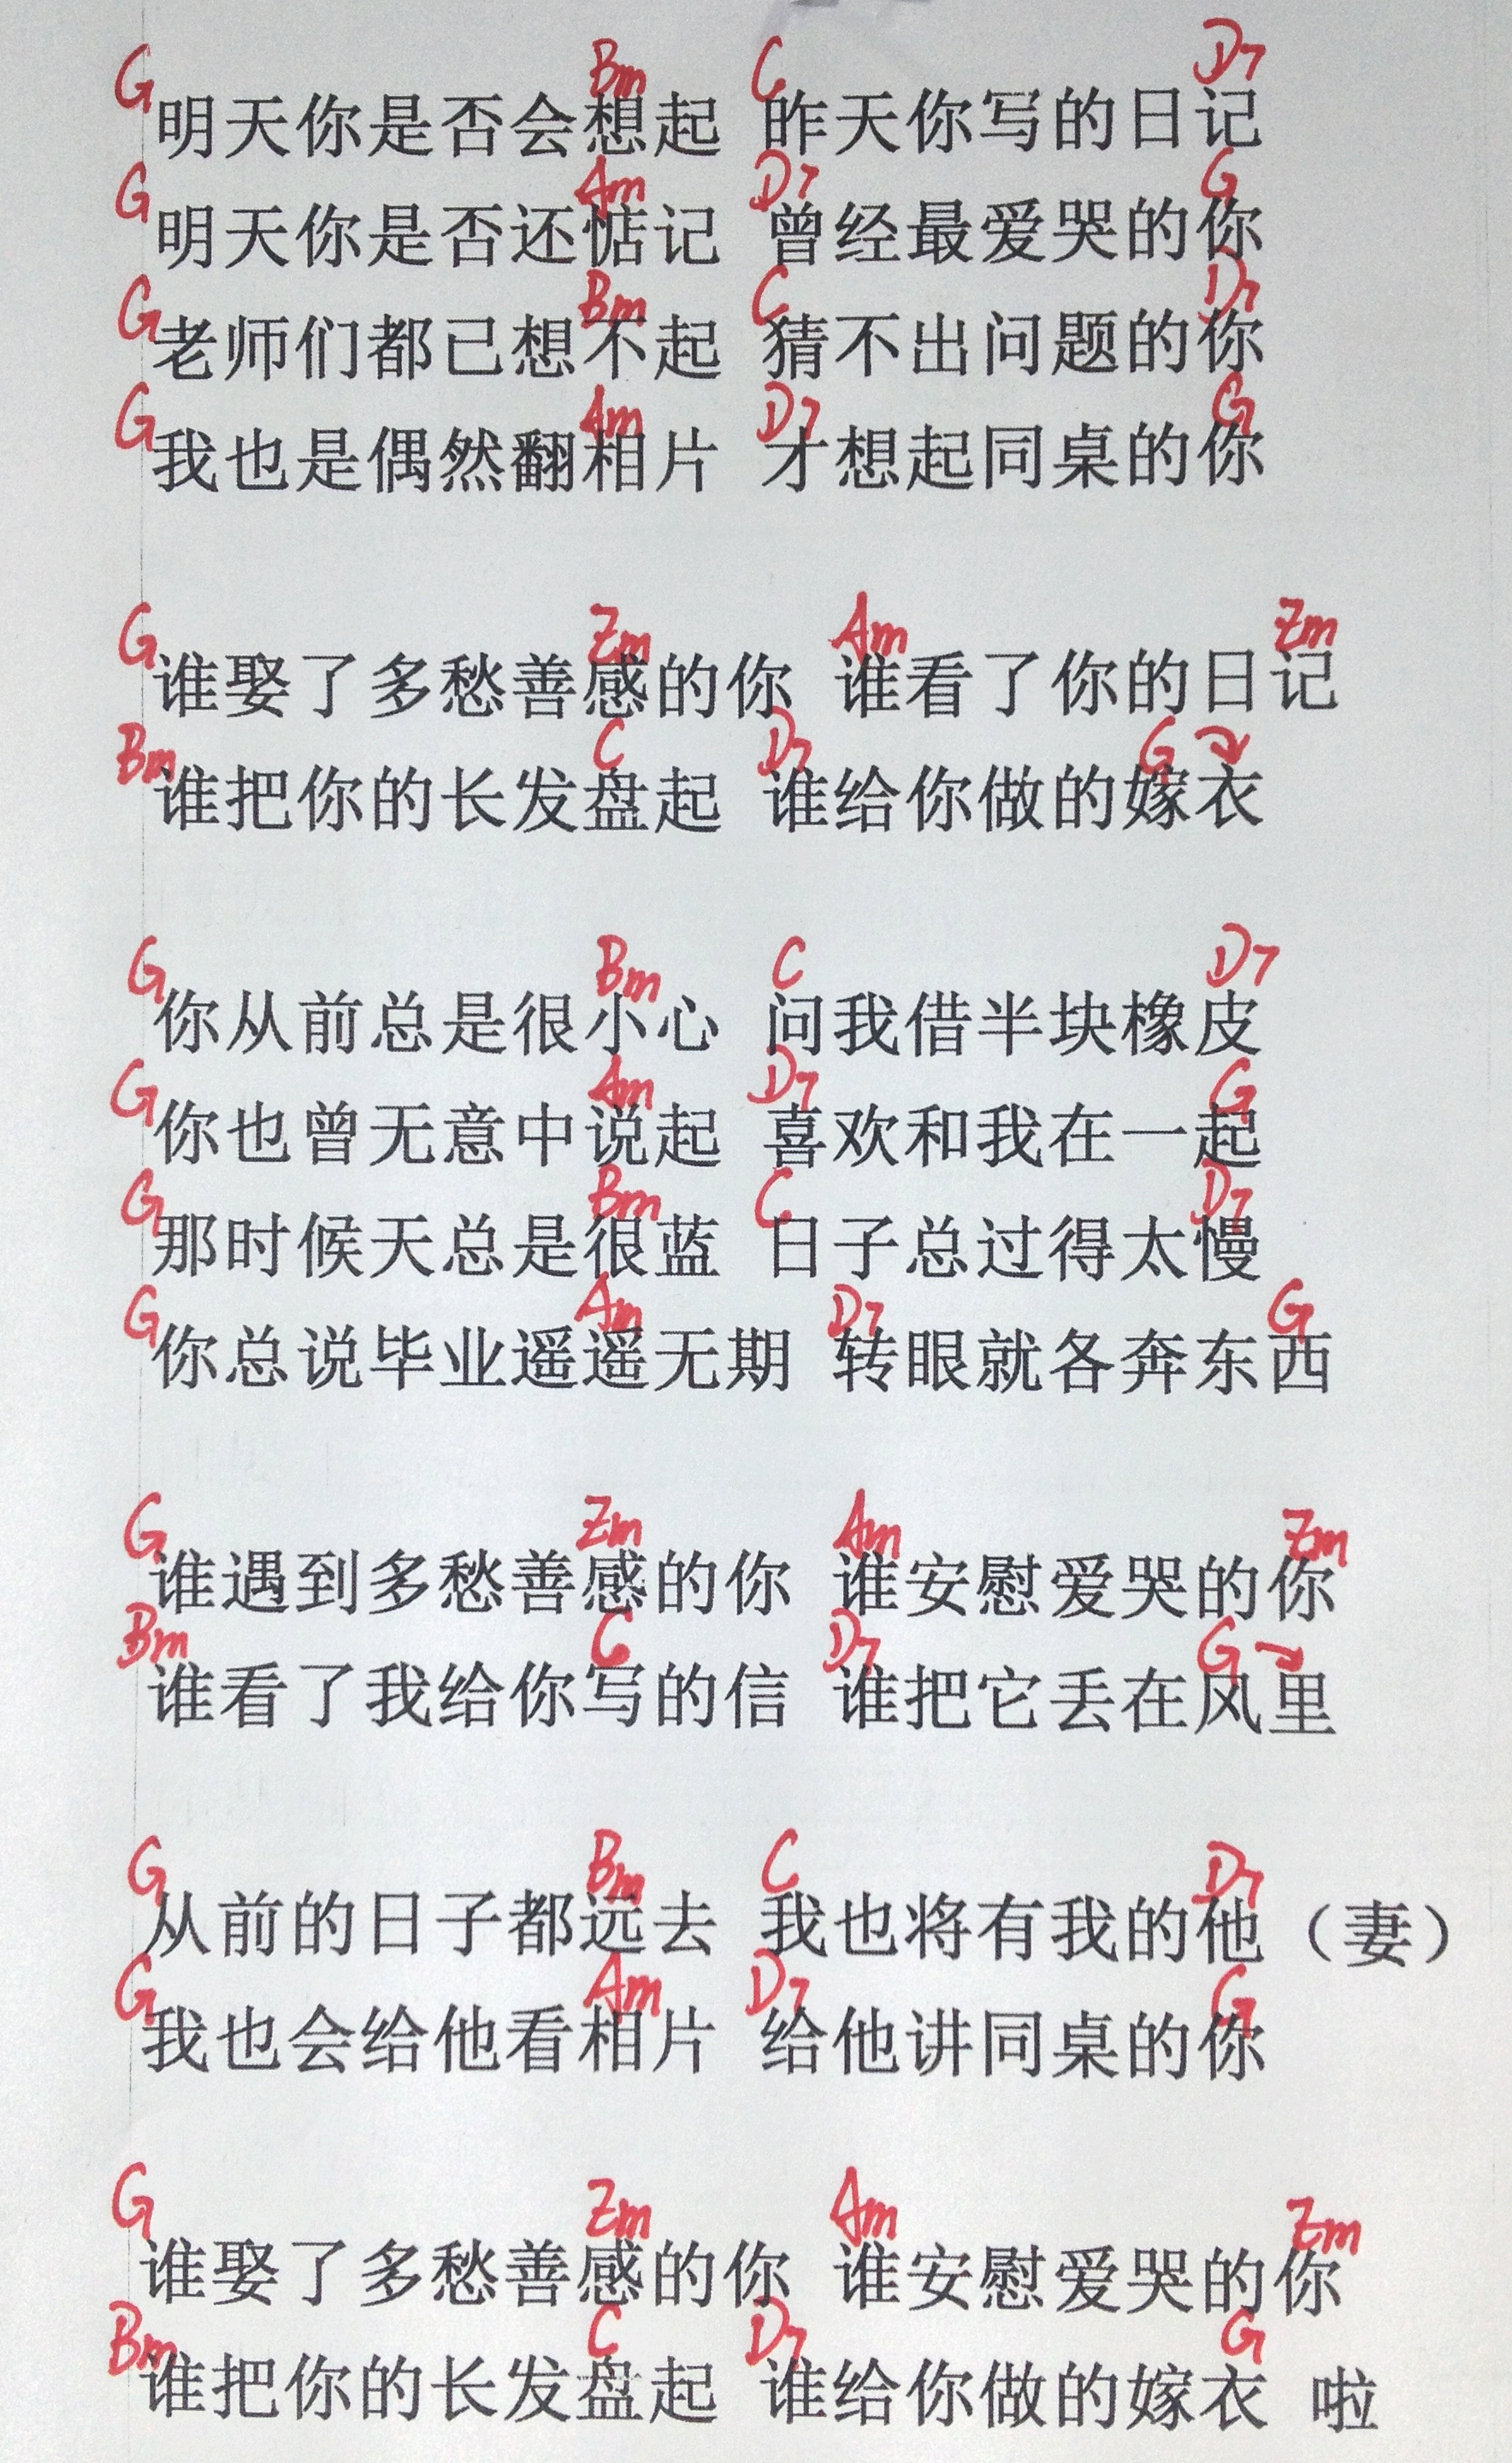 G Bm C D7
明天你是否会想起 昨天你写的日记
G Am D7 G
明天你是否还惦记 曾经最爱哭的你
G Bm C D7
老师们都已想不起 猜不出问题的你
G Am D7 G
我也是偶然翻相片 才想起同桌的你
G Em Am Em
谁娶了多愁善感的你 谁看了你的日记
Bm C D7 G
谁把你的长发盘起 谁给你做的嫁衣
G Bm C D7
你从前总是很小心 问我借半块橡皮
G Am D7 G
你也曾无意中说起 喜欢和我在一起
G Bm C D7
那时候天总是很蓝 日子总过得太慢
G Am D7 G
你总说毕业遥遥无期 转眼就各奔东西
G Em Am Em
谁遇到多愁善感的你 谁安慰爱哭的你
Bm C D7 G
谁看了我给你写的信 谁把它丢在风里
G Bm C D7
从前的日子都远去 我也将有我的他（妻）
G Am D7 G
我也会给他看相片 给他讲同桌的你
G Em Am Em
谁娶了多愁善感的你 谁安慰爱哭的你
Bm C D7 G
谁把你的长发盘起 谁给你做的嫁衣 啦